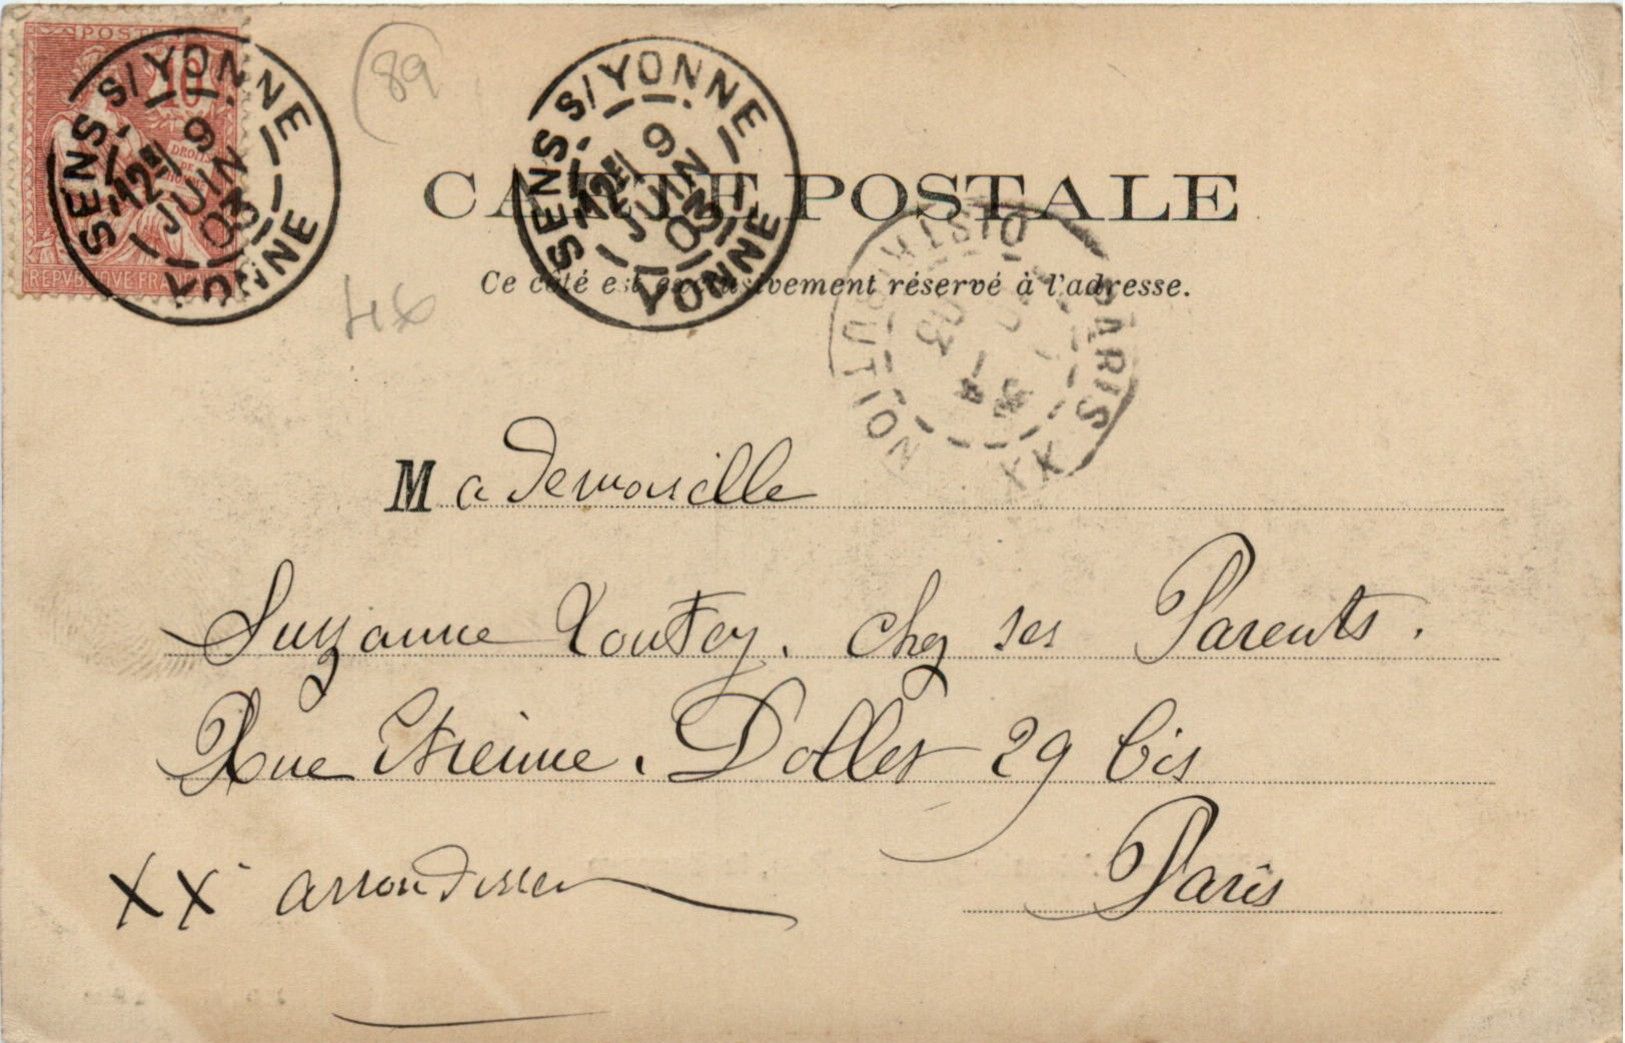 POSTES
10
DROITS
DE
REPVBLIQVE FRANÇAISE
SENS S/ YONNE
12E 9
JUIN
03
YONNE
89
SENS S/ YONNE
12E 9
JUIN
03
YONNE
CARTE POSTALE
Ce côté est exclusivement réservé à l'adresse.
46
PARIS XX
DISTRIBUTION
03
Mademoiselle
Suzanne chez ses Parents.
Rue Etienne. Dollet 29 bis
Paris
XXe arrondissem